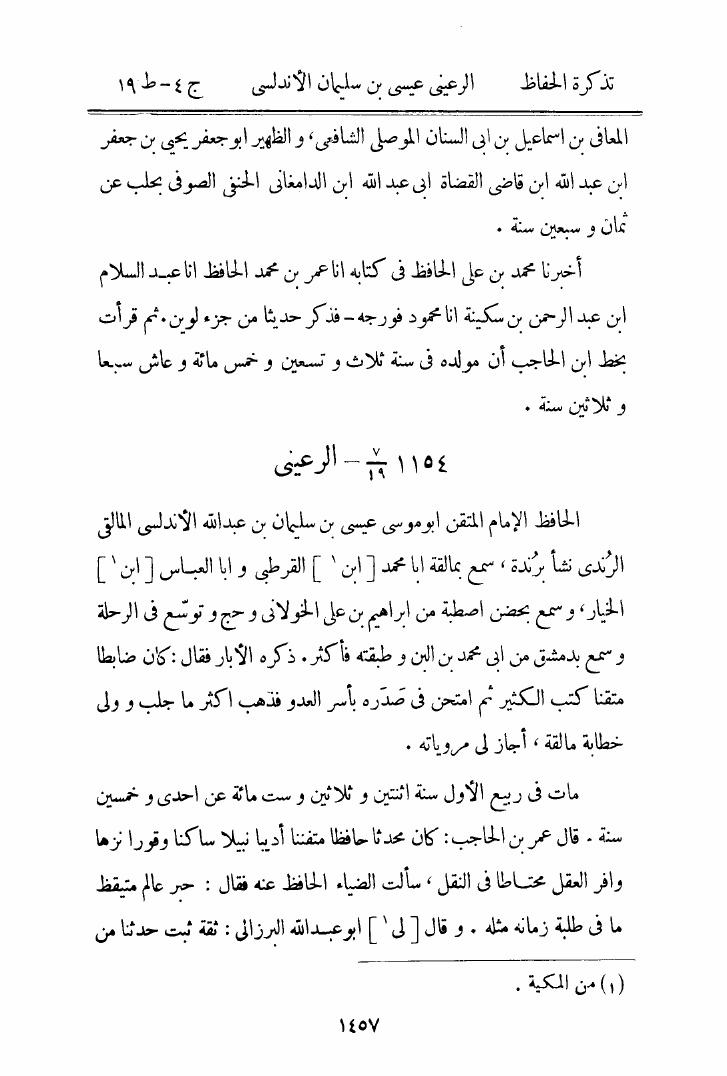 تذكرة الحفاظ الرعينى عيسى بن سليمان الأندلسى ج ٤ - ط ١٩
المعافى بن اسماعيل بن ابى السنان الموصلى الشافعى، و الظهير ابو جعفر يحيى بن جعفر
ابن عبد الله ابن قاضى القضاة ابى عبد الله ابن الدامغانى الحنفى الصوفى بحلب عن
ثمان و سبعين سنة .
أخبرنا محمد بن على الحافظ فى كتابه انا عمر بن محمد الحافظ انا عبد السلام
ابن عبد الرحمن بن سكينة انا محمود فورجه - فذكر حديثا من جزء لوين. ثم قرأت
بخط ابن الحاجب أن مولده فى سنة ثلاث و تسعين و خمس مائة و عاش سبعا
و ثلاثين سنة .
١١٥٤ ٧/١٩ - الرعينى
الحافظ الإمام المتقن ابو موسى عيسى بن سليمان بن عبد الله الأندلسى المالقى
الرُندى نشأ برُندة ، سمع بمالقة ابا محمد [ ابن ١ ] القرطبى و ابا العباس [ ابن ١ ]
الخيار، و سمع بحضن اصطبة من ابراهيم بن على الخولانى و حج و توسّع فى الرحلة
و سمع بدمشق من ابى محمد بن البن و طبقته فأكثر. ذكره الأبار فقال : كان ضابطا
متقنا كتب الكثير ثم امتحن فى صَدَره بأسر العدو فذهب اكثر ما جلب و ولى
خطابة مالقة ، أجاز لى مروياته .
مات فى ربيع الأول سنة اثنتين و ثلاثين و ست مائة عن احدى و خمسين
سنة . قال عمر بن الحاجب : كان محدثا حافظا متفننا أديبا نبيلا ساكنا وقورا نزها
وافر العقل محتاطا فى النقل ، سألت الضياء الحافظ عنه فقال : حبر عالم متيقظ
ما فى طلبة زمانه مثله . و قال [ لى ١ ] ابو عبد الله البرزالى : ثقة ثبت حدثنا من
(١) من المكية .
١٤٥٧